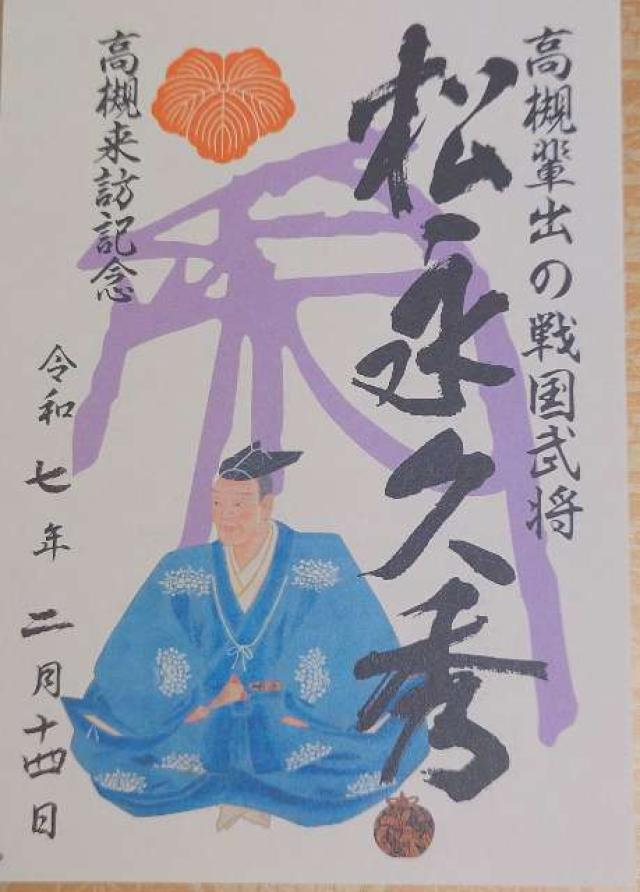 高槻輩出の戦国武将
松永久秀
高槻来訪記念
令和七年二月十四日